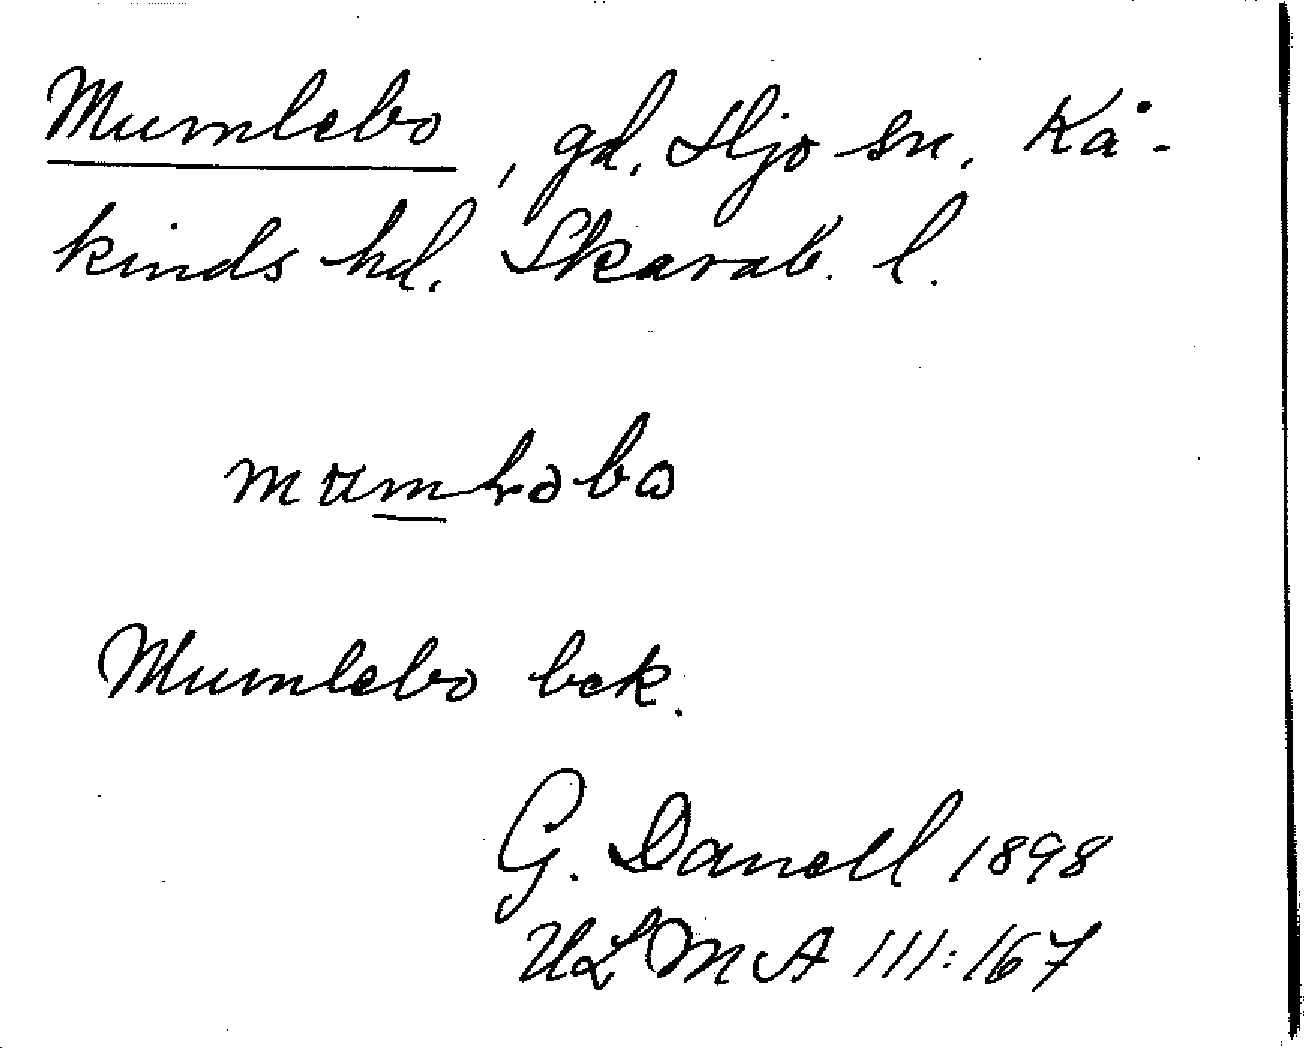 Mumlebo, gd, Hjo sn. Kå-
kinds hd. Skarab. l.
Mumlebo bek.
G. Danell 1898
ULMA 111:167